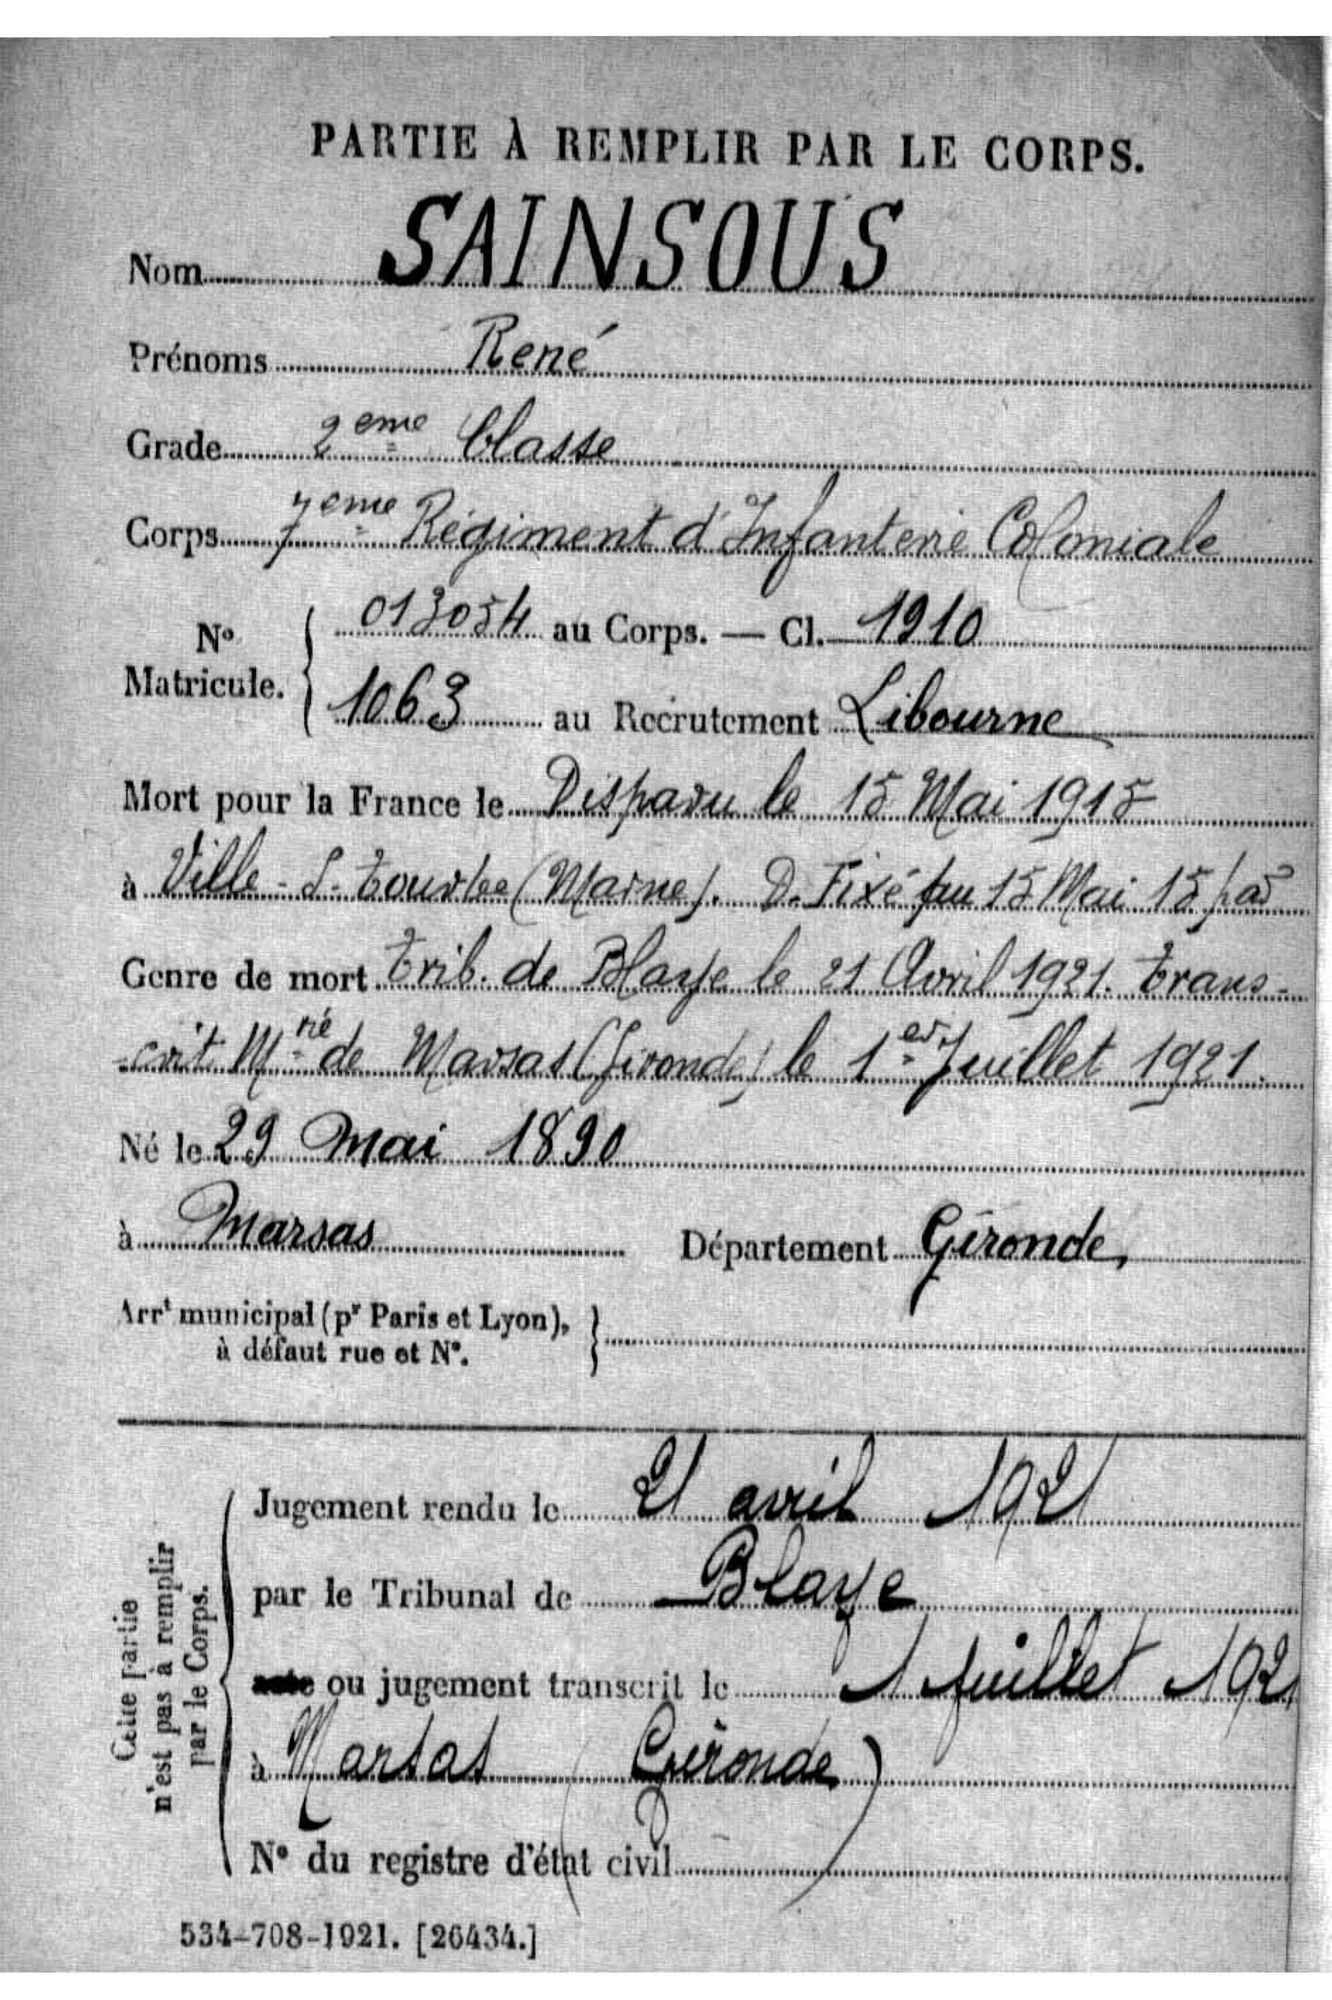 PARTIE À REMPLIR PAR LE CORPS.
Nom SAINSOUS
Prénoms René
Grade 2eme Classe
Corps 7eme Régiment d'Infanterie Coloniale
No Matricule. { 013054 au Corps. — Cl. 1910
1063 au Recrutement Libourne
Mort pour la France le Disparu le 15 Mai 1915
à Ville-S-Tourbe (Marne). D. Fixé au 15 Mai 15 par
Genre de mort Trib. de Blaye le 21 Avril 1921. Trans-
-crit Mrie de Marsas (Gironde) le 1er Juillet 1921.
Né le 29 Mai 1890
à Marsas Département Gironde,
Arrt municipal (pr Paris et Lyon), }
à défaut rue et No.
Cette partie
n'est pas à remplir
par le Corps.
Jugement rendu le 21 avril 1921
par le Tribunal de Blaye
acte ou jugement transcrit le 1 Juillet 1921
à Marsas (Gironde)
No du registre d'état civil
534-708-1921. [26434.]